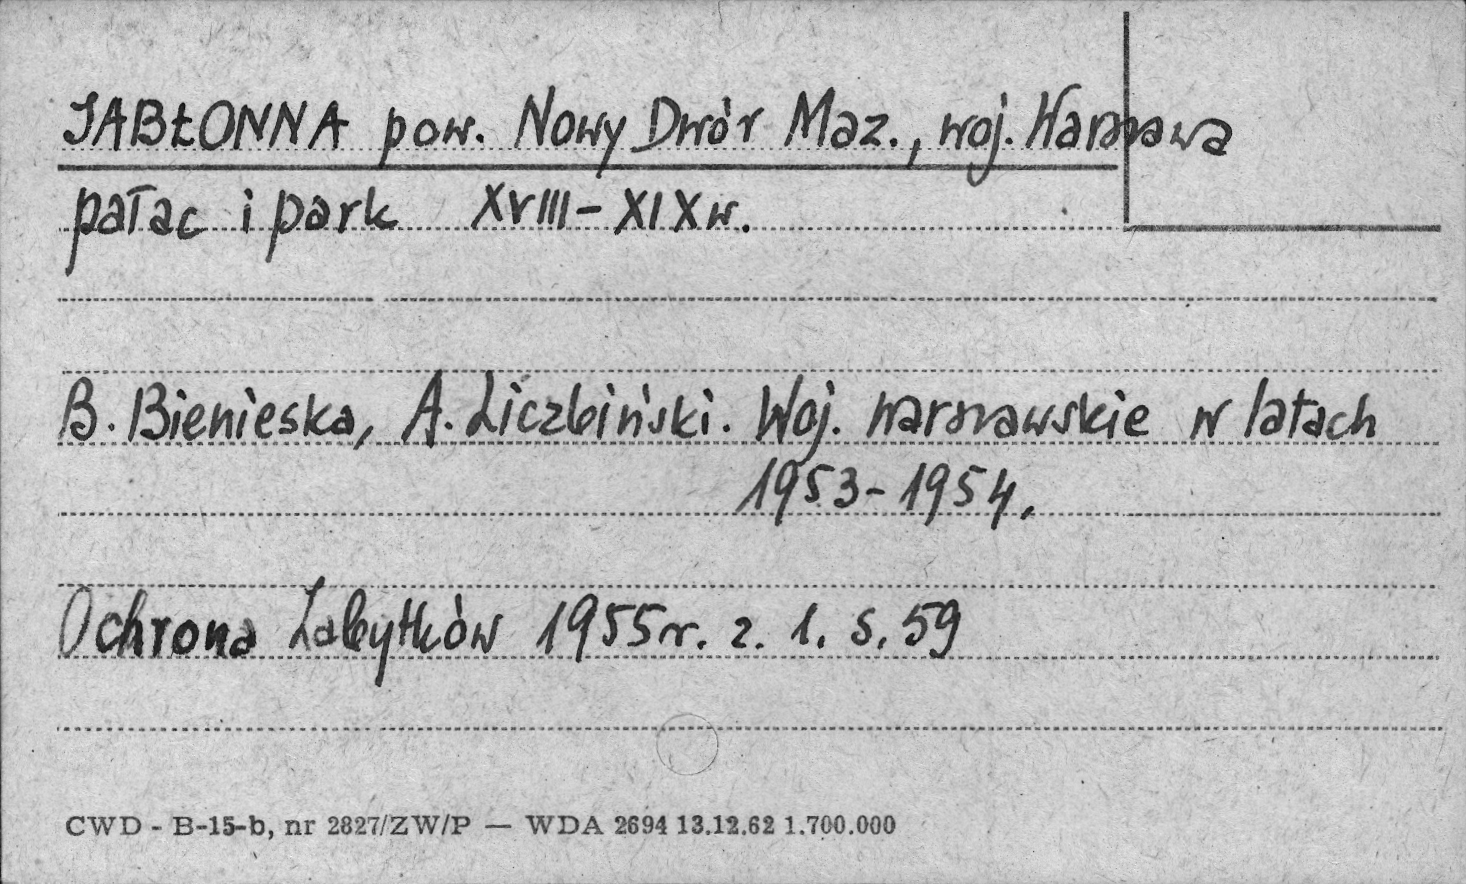 JABŁONNA pow. Nowy Dwór Maz., woj. Warszawa
pałac i park XVIII-XIX w.
B. Bienieska, A. Liczbiński. Woj. warszawskie w latach
1953-1954.
Ochrona Zabytków 1955 r. z. 1. s. 59
CWD - B-15-b, nr 2827/ZW/P — WDA 2694 13.12.62 1.700.000